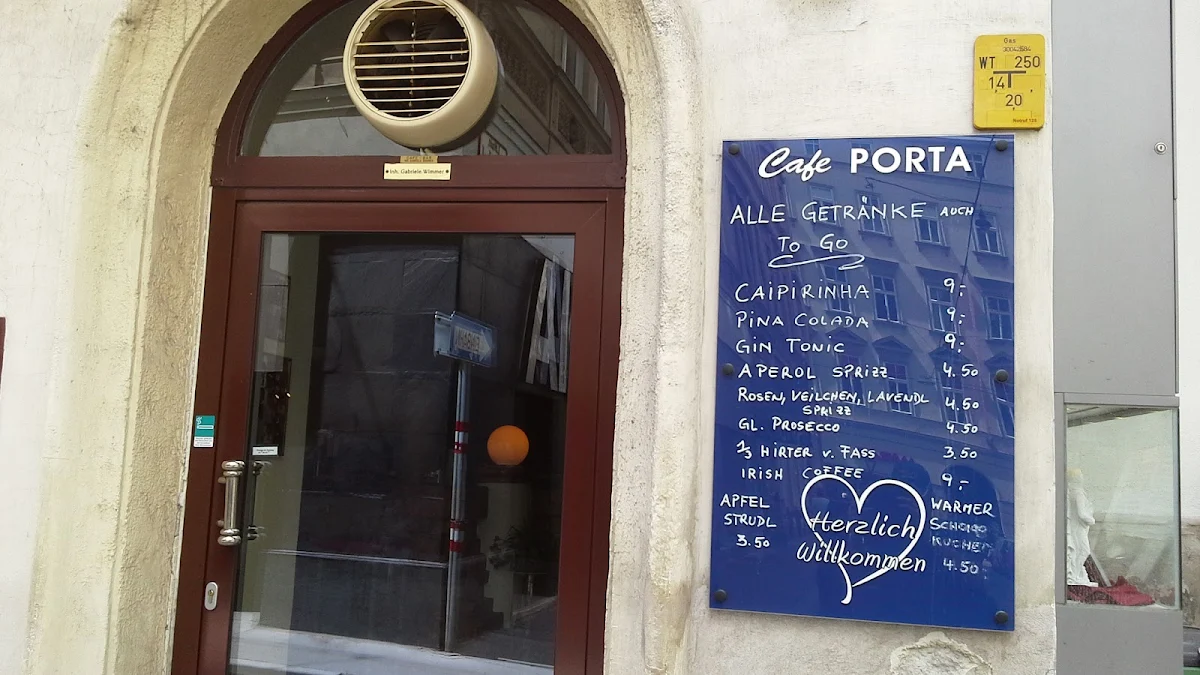 Inh. Gabriele Wimmer
Gas
WT 250
1,4
20
Cafe PORTA
ALLE GETRÄNKE AUCH
To Go
CAIPIRINHA 9,-
PINA COLADA 9,-
GIN TONIC 9,-
APEROL SPRIZZ 4.50
ROSEN, VEILCHEN, LAVENDL
SPRIZZ 4.50
GL. PROSECCO 4.50
1/3 HIRTER v. FASS 3,50
IRISH COFFEE 9,-
APFEL
STRUDL
3.50
Herzlich
Willkommen
WARMER
SCHOKO
KUCHEN
4.50